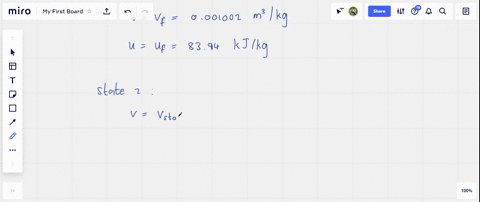 miro
My First Board
Share
v_f = 0.001002 m³/kg
u = u_f = 83.94 kJ/kg
state 2 :
v = v_sto
100%